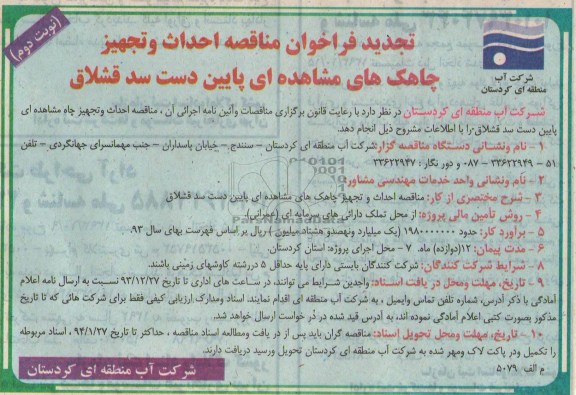 (نوبت دوم)
تجدید فراخوان مناقصه احداث وتجهیز
چاهک های مشاهده ای پایین دست سد قشلاق
شرکت آب
منطقه ای کردستان
شرکت آب منطقه ای کردستان در نظر دارد با رعایت قانون برگزاری مناقصات وآئین نامه اجرائی آن ، مناقصه احداث وتجهیز چاه مشاهده ای
پایین دست سد قشلاق را با اطلاعات مشروح ذیل انجام دهد.
۱ - نام ونشانی دستگاه مناقصه گزار:شرکت آب منطقه ای کردستان - سنندج - خیابان پاسداران - جنب مهمانسرای جهانگردی - تلفن
۵۱ - ۳۳۶۲۲۹۴۹ - ۰۸۷ و دور نگار : ۳۳۶۲۲۹۴۷
۲ - نام ونشانی واحد خدمات مهندسی مشاور:
۳ - شرح مختصری از کار: مناقصه احداث و تجهیز چاهک های مشاهده ای پایین دست سد قشلاق
۴ - روش تأمین مالی پروژه: از محل تملک دارائی های سرمایه ای (عمرانی)
۵ - برآورد کار: حدود ۱۹۸۰۰۰۰۰۰۰ (یک میلیارد ونهصدو هشتاد میلیون ) ریال بر اساس فهرست بهای سال ۹۳
۶ - مدت پیمان: ۱۲(دوازده) ماه. ۷ - محل اجرای پروژه: استان کردستان.
۸ - شرایط شرکت کنندگان: شرکت کنندگان بایستی دارای پایه حداقل ۵ دررشته کاوشهای زمینی باشند.
۹ - تاریخ، مهلت ومحل در یافت اسناد: واجدین شرایط می توانند، در ساعت های اداری تا تاریخ ۹۳/۱۲/۲۷ نسبت به ارسال نامه اعلام
آمادگی با ذکر آدرس، شماره تلفن تماس وایمیل ، به شرکت آب منطقه ای اقدام نمایند. اسناد ومدارک ارزیابی کیفی فقط برای شرکت هائی که تا تاریخ
مذکور بصورت کتبی اعلام آمادگی نموده اند، به آدرس قید شده در در خواست ارسال خواهد شد.
۱۰ - تاریخ، مهلت ومحل تحویل اسناد: مناقصه گران باید پس از در یافت ومطالعه اسناد مناقصه ، حداکثر تا تاریخ ۹۴/۱/۲۷ ، اسناد مربوطه
را تکمیل ودر پاکت لاک ومهر شده به شرکت آب منطقه ای کردستان تحویل ورسید دریافت دارند.
م الف ۵۰۷۹
شرکت آب منطقه ای کردستان